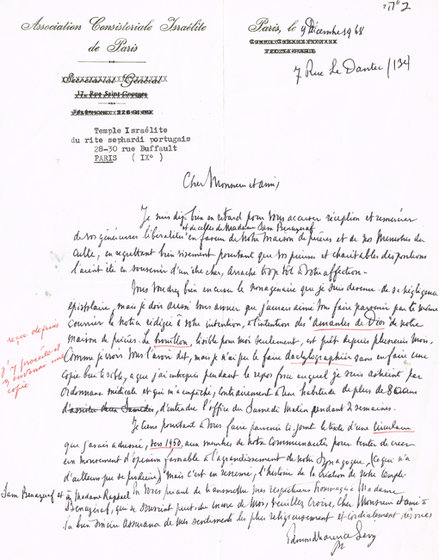 n°2
Association Consistoriale Israélite
de Paris
Paris, le 9 Décembre 1968
7 Rue Le Dantec (13e)
Secrétariat Général
17, Rue Saint-Georges
Temple Israélite
du rite sephardi portugais
28-30 rue Buffault
PARIS (IX°)
Cher Monsieur et ami,
Je suis bien en retard pour vous accuser réception et remercier
et de celles de Madame Sam Benazeraf
de vos généreuses libéralités en faveur de notre maison de prières et de ses Ministres du
Culte, en regrettant bien vivement pourtant que vos pieuses et charitables dispositions
l'aient été en souvenir d'un être cher, arraché trop tôt à votre affection.
Vous voudrez bien excuser le nonagénaire que je suis devenu de sa négligence
épistolaire, mais je dois aussi vous avouer que j'aurais aimé vous faire parvenir par le même
Courrier la notice rédigée à votre intention, à l'intention des Amantes de Dios de notre
maison de prières. Le brouillon, lisible pour moi seulement, est prêt depuis plusieurs mois,
Comme je crois vous l'avoir dit, mais je n'ai pu le faire dactylographier sans en faire une
copie lisible, ce que j'ai entrepris pendant le repos forcé auquel je suis astreint par
Ordonnance médicale et qui m'a empêché, contrairement à leur habitude de plus de 80 ans
d'entendre l'office du Samedi Matin pendant 2 semaines.
reçue depuis
copie
Je tiens pourtant à vous faire parvenir ci-joint le texte d'une circulaire
que j'avais adressée, vers 1950, aux membres de notre Communauté pour tenter de créer
un mouvement d'opinion favorable à l'agrandissement de notre Synagogue (ce qui n'a
d'ailleurs pas), mais c'est en résumé, l'histoire de la création de notre temple
Sam Benazeraf et à Madame Raphaël
En vous priant de transmettre mes respectueux hommages à Madame
Benazeraf, qui se souvient peut-être encore de moi, veuillez croire, cher Monsieur et ami à
la bien sincère assurance de mes sentiments les plus religieusement et cordialement dévoués
Edmond Laurence Levy